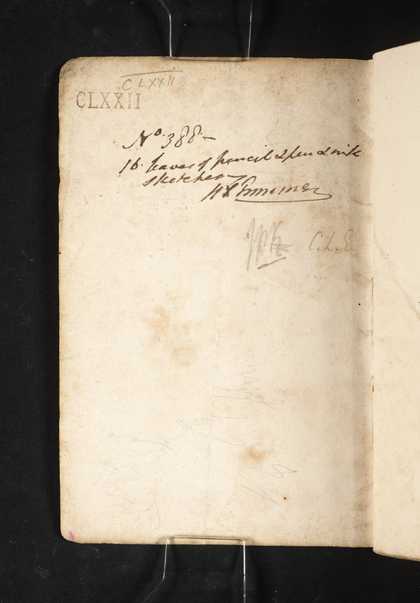 C LXXII
CLXXII
No. 388 –
16 leaves of pencil & pen & ink
sketches
H S Trimmer
JPK C.L.E